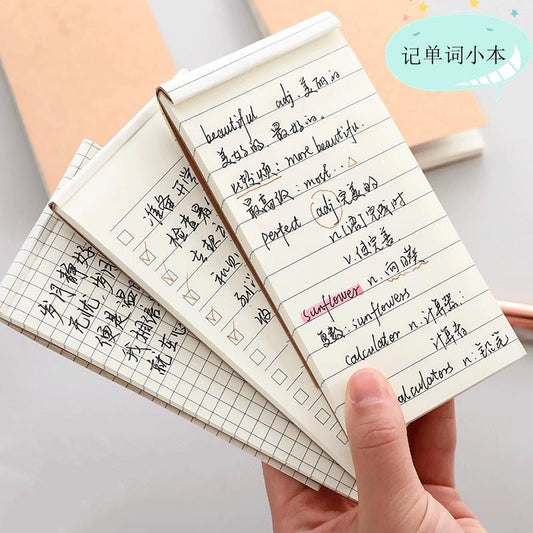 记单词小本
beautiful adj. 美丽的
美好的, 最好的.
比较级: more beautiful.
最高级: most...
perfect adj 完美的
n. [语] 完成时
v. 使完善
sunflower n. 向日葵
复数: sunflowers
calculator n. 计算器:
计算者
calculators n:
准备开学
检查
岁月静好
无忧, 岁月
便是温
我相信